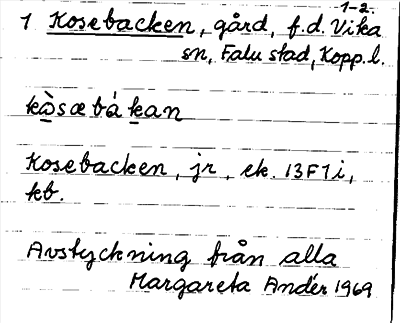 1-2.
1 Kosebacken, gård, f.d. Vika
sn, Falu stad, Kopp. l.
kò̠sæbá k̠an
Kosebacken, jr, ek. 13F1i,
kb.
Avstyckning från alla
Margareta Andér 1969